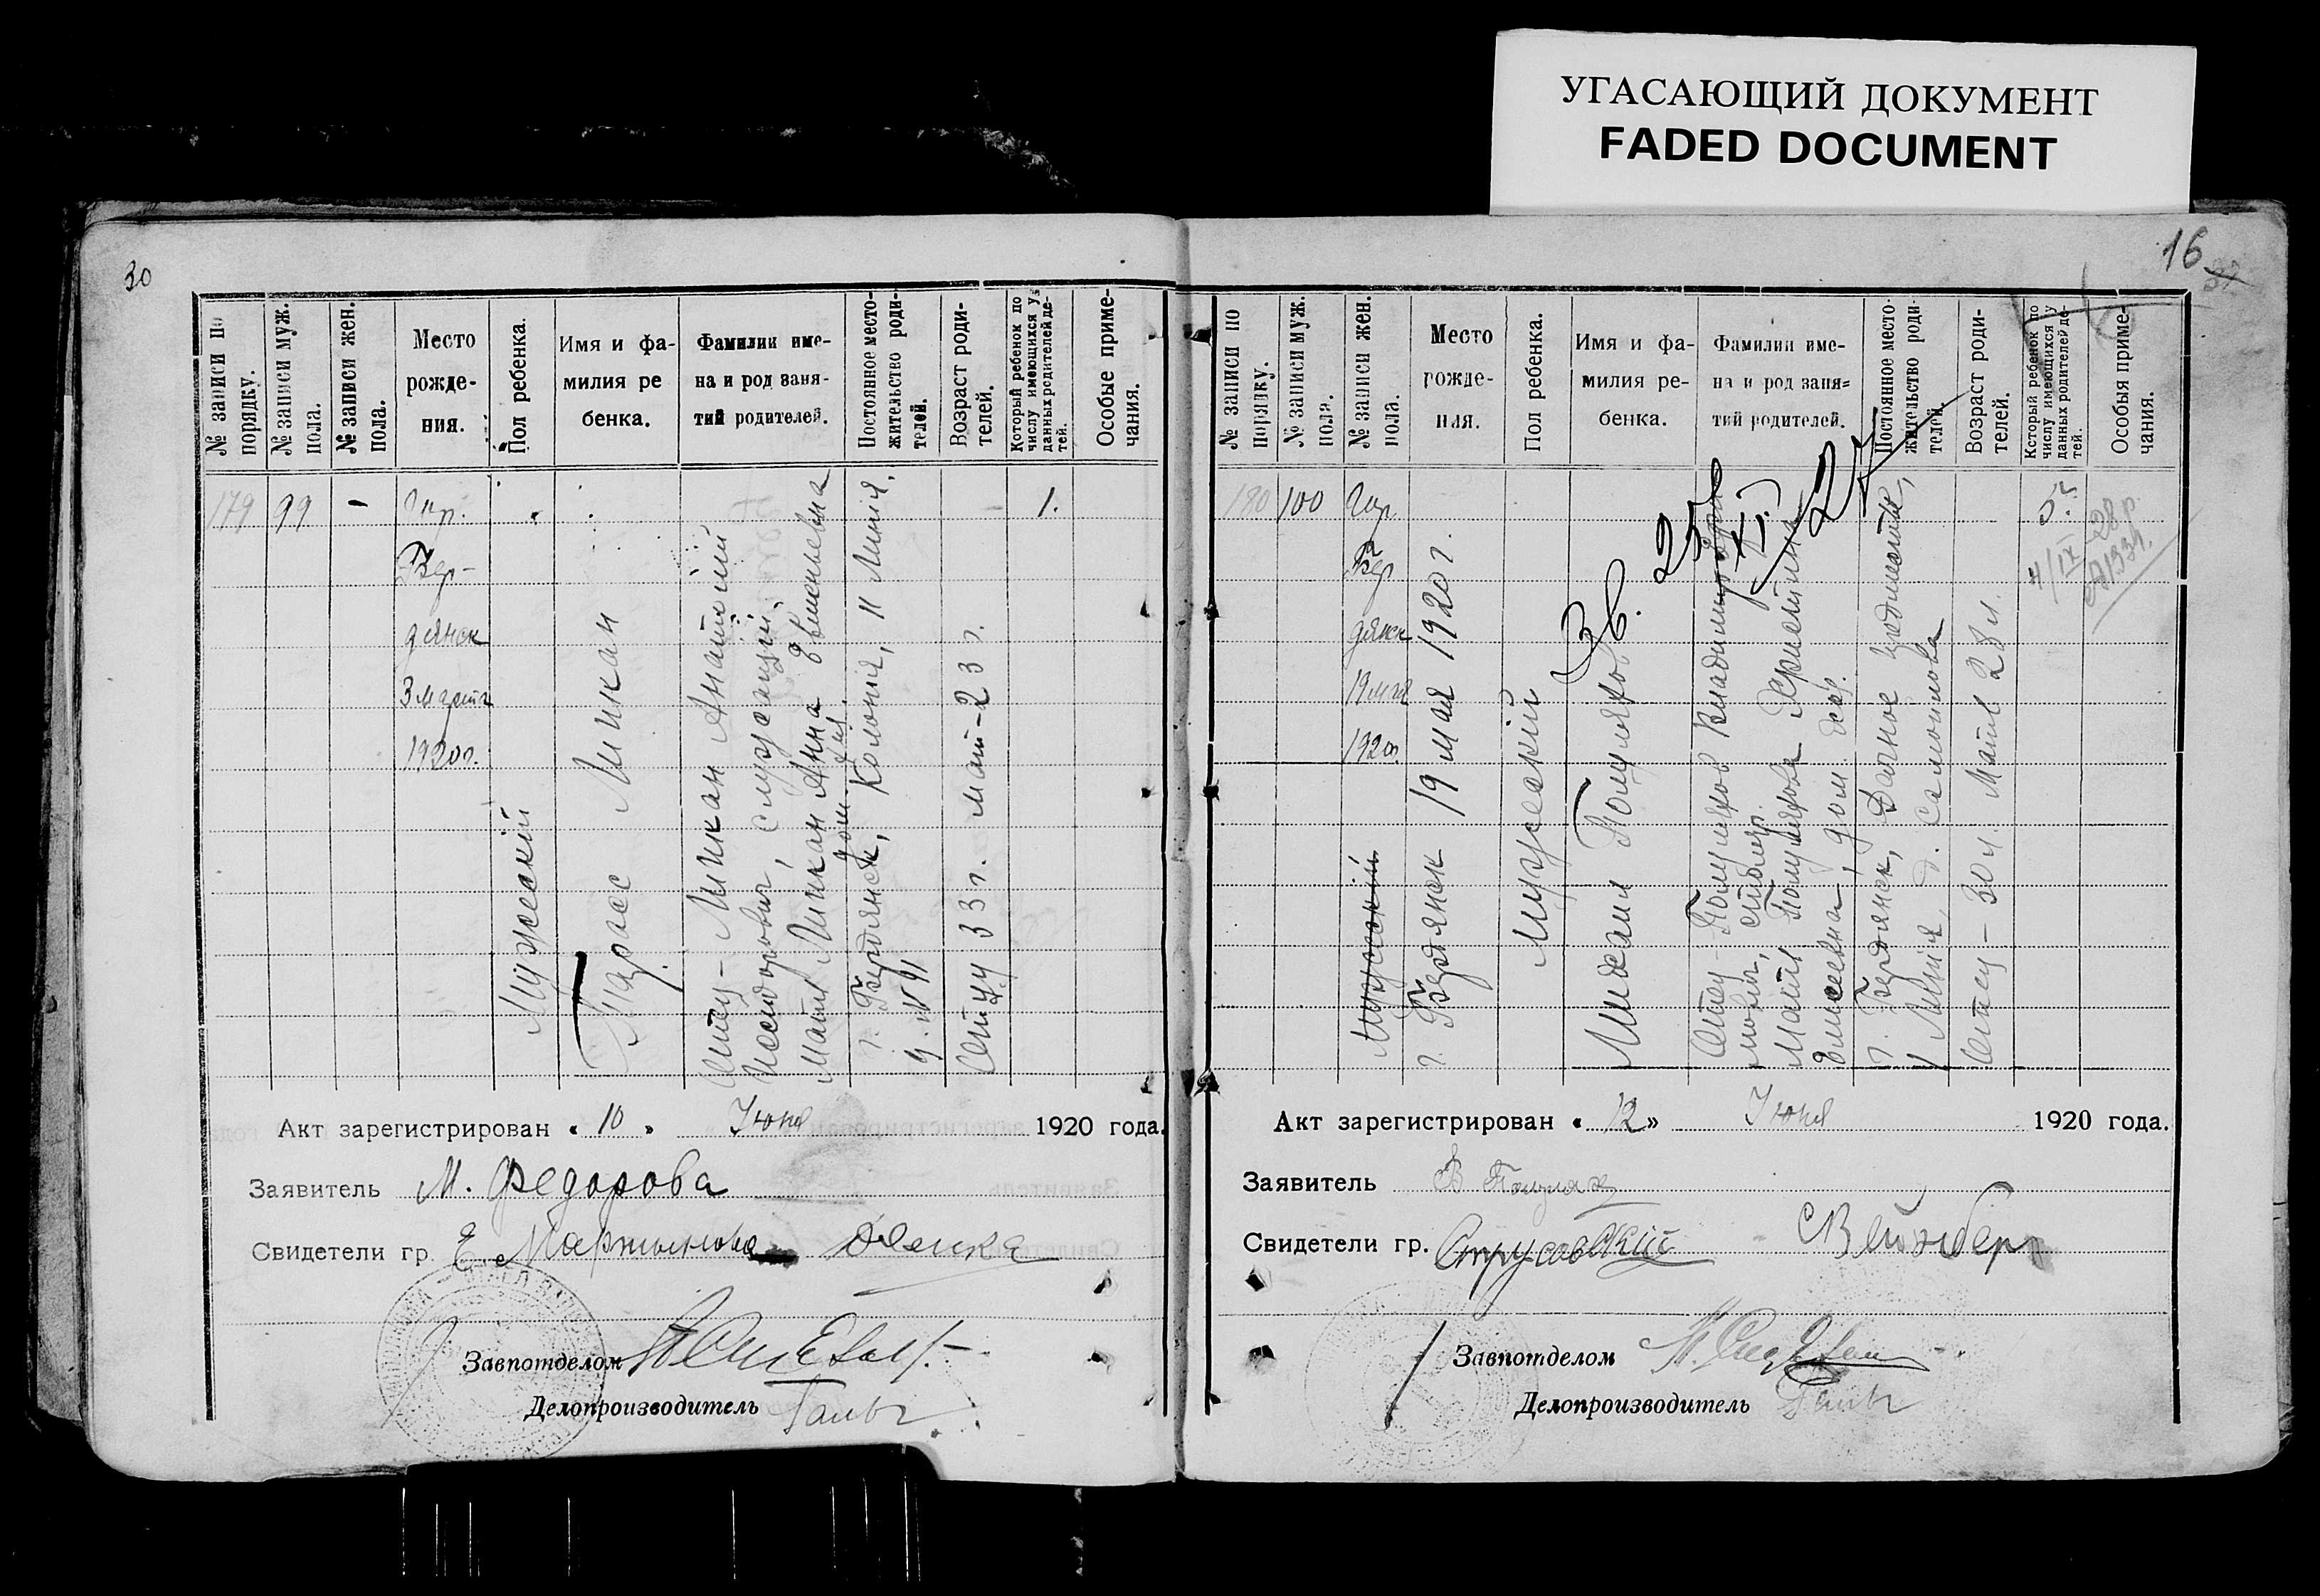 УГАСАЮЩИЙ ДОКУМЕНТ
FADED DOCUMENT
30
№ записи по
порядку.
№ записи муж.
пола.
№ записи жен.
пола.
Место
рожде-
ния.
Пол ребенка.
Имя и фа-
милия ре
бенка.
Фамилии име-
на и род заня-
тий родителей.
Постоянное место-
жительство роди-
телей.
Возраст роди-
телей.
Который ребенок по
числу имеющихся у
данных родителей де-
тей.
Особые приме-
чания.
179
99
-
Гор.
Бер-
дянск
3 марта
1920г.
Мужеский
Тарас Микан
Отец - Микан Анатолий
Исидорович, служащий.
Мать Микан Анна Евменьевна
дом.
г. Бердянск, Колония, 11 Линия,
д. № 91
Отцу 33 г. Мат - 23 г.
1.
Акт зарегистрирован « 10 » Июня 1920 года.
Заявитель М. Федорова
Свидетели гр. Е. Мартынова
Завпотделом
Делопроизводитель
16
31
№ записи по
порядку.
№ записи муж.
пола.
№ записи жен.
пола.
Место
рожде-
ния.
Пол ребенка.
Имя и фа-
милия ре-
бенка.
Фамилии име-
на и род заня=
тий родителей.
Постоянное место-
жительство роди-
телей.
Возраст роди-
телей.
Который ребенок по
числу имеющихся у
данных родителей де-
тей.
Особыя приме-
чания.
180
100
Гор
Бер
дянск
19 мая
1920
Мужеский
г. Бердянск 19 мая 1920 г.
Мужеский
Михаил
Отец -
мович, столяр.
Мать
дом.
г. Бердянск, Дачное
Линия, д. Самойлова
Отец - 30 л. Мать 28 л.
5й
4/IX 28 р.
Зв. 25/XI 27
Акт зарегистрирован « 12 » Июня 1920 года.
Заявитель В
Свидетели гр. Струсовский С Вейнберг
Завпотделом
Делопроизводитель